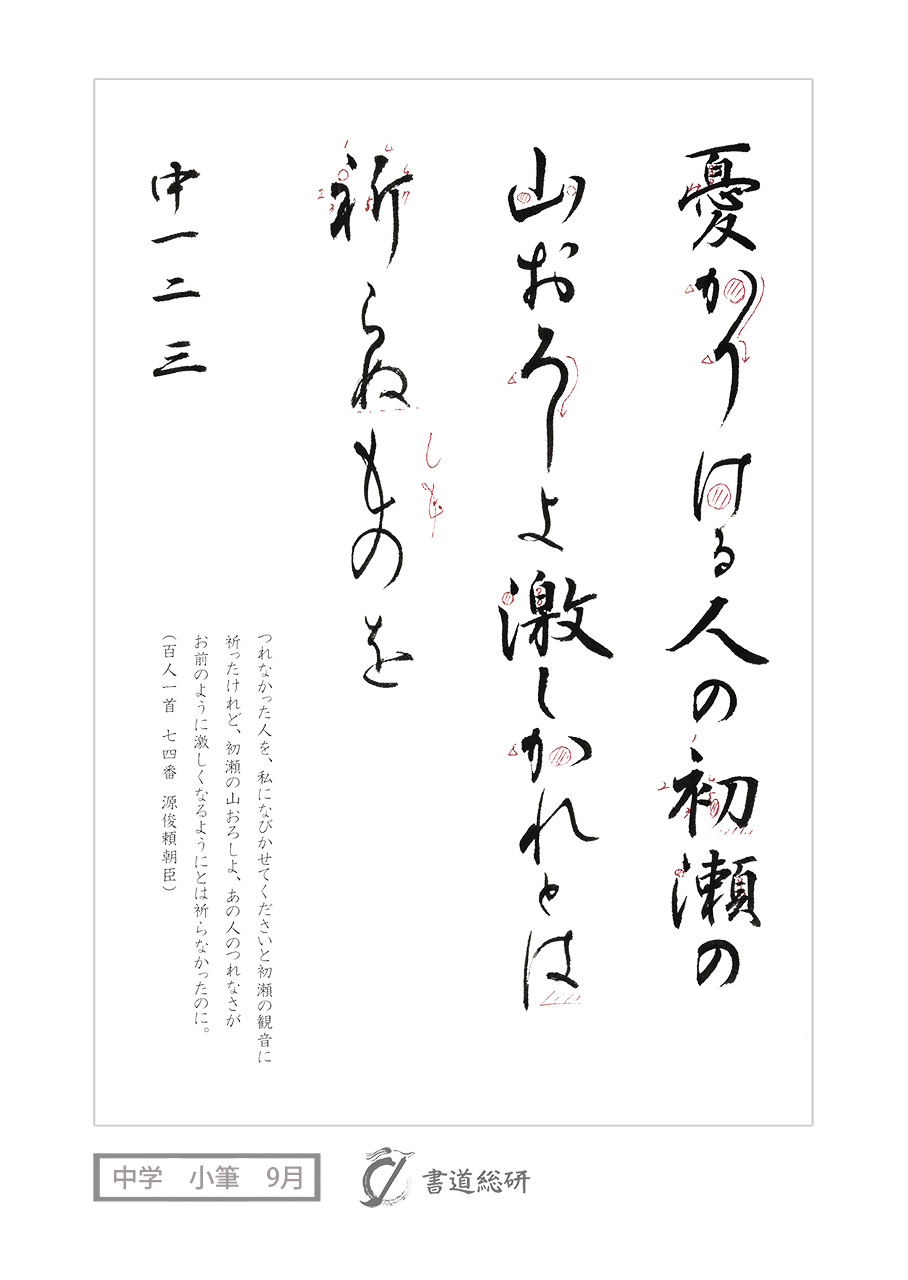 憂かりける人の初瀬の
山おろしよ激しかれとは
祈らぬものを
中一二三
つれなかった人を、私になびかせてくださいと初瀬の観音に
祈ったけれど、初瀬の山おろしよ、あの人のつれなさが
お前のように激しくなるようにとは祈らなかったのに。
（百人一首 七四番 源俊頼朝臣）
中学 小筆 9月
書道総研